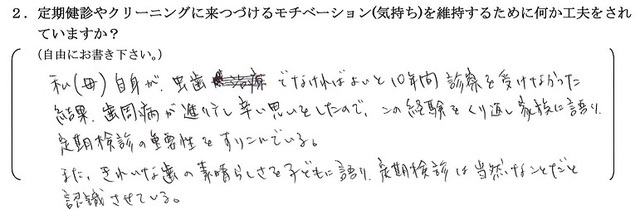 2．定期健診やクリーニングに来つづけるモチベーション(気持ち)を維持するために何か工夫をされ
ていますか？
(自由にお書き下さい。)
私(母)自身が、虫歯でなければよいと10年間診察を受けなかった
結果、歯周病が進行し辛い思いをしたので、この経験をくり返し家族に語り、
定期検診の重要性をすりこんでいる。
また、きれいな歯の素晴らしさを子どもに語り、定期検診は当然なことだと
認識させている。